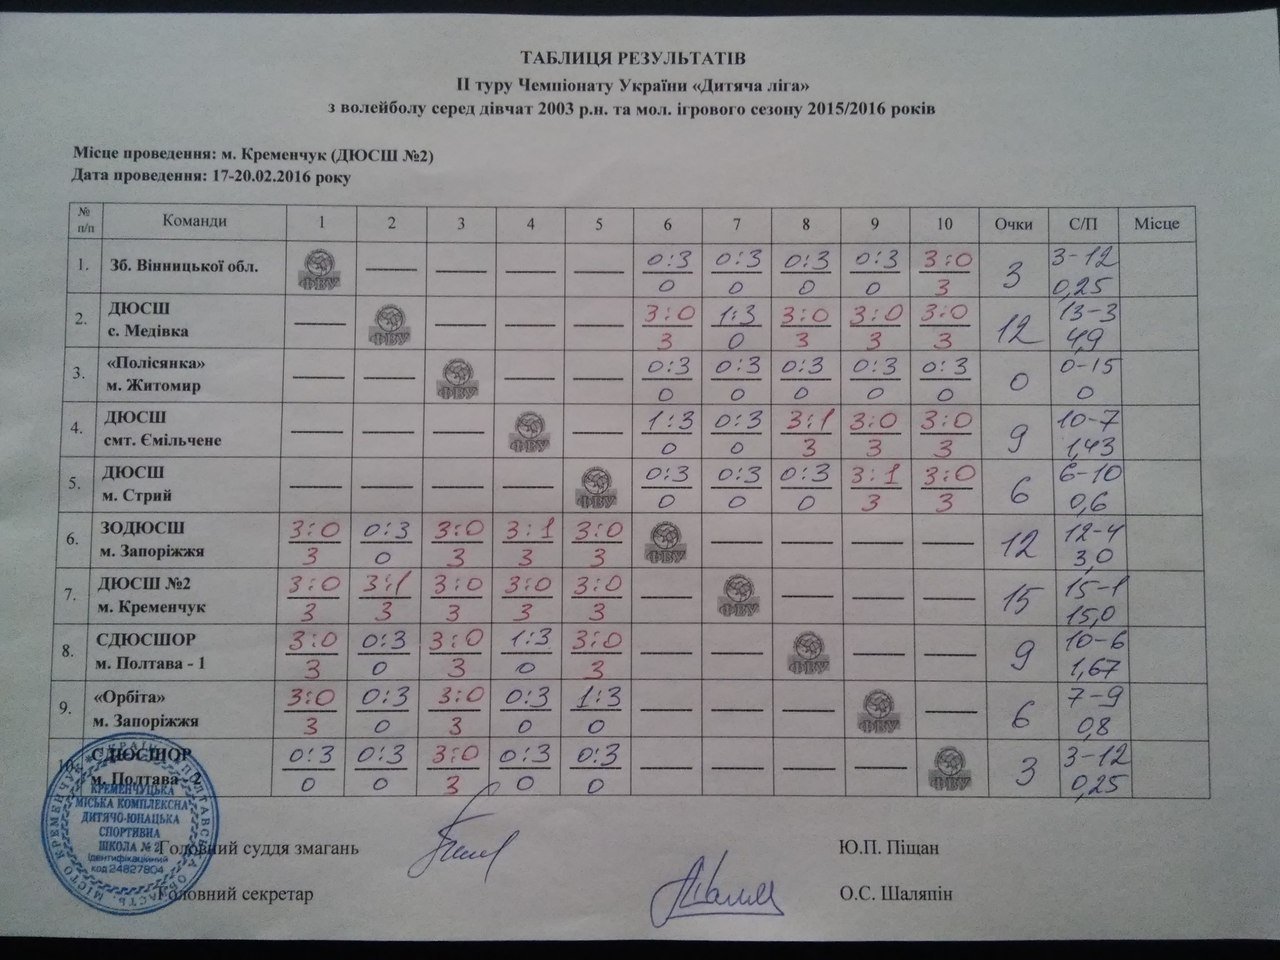 ТАБЛИЦЯ РЕЗУЛЬТАТІВ
ІІ туру Чемпіонату України «Дитяча ліга»
з волейболу серед дівчат 2003 р.н. та мол. ігрового сезону 2015/2016 років
Місце проведення: м. Кременчук (ДЮСШ №2)
Дата проведення: 17-20.02.2016 року
№ п/п Команди 1 2 3 4 5 6 7 8 9 10 Очки С/П Місце
1. Зб. Вінницької обл. ФВУ — — — — 0:3 0:3 0:3 0:3 3:0 3 3-12
0 0 0 0 3 0,25
2. ДЮСШ — ФВУ — — — 3:0 1:3 3:0 3:0 3:0 12 13-3
с. Медівка 3 0 3 3 3 4,9
3. «Полісянка» — — ФВУ — — 0:3 0:3 0:3 0:3 0:3 0 0-15
м. Житомир 0 0 0 0 0 0
4. ДЮСШ — — — ФВУ — 1:3 0:3 3:1 3:0 3:0 9 10-7
смт. Ємільчене 0 0 3 3 3 1,43
5. ДЮСШ — — — — ФВУ 0:3 0:3 0:3 3:1 3:0 6 6-10
м. Стрий 0 0 0 3 3 0,6
6. ЗОДЮСШ 3:0 0:3 3:0 3:1 3:0 ФВУ — — — — 12 12-4
м. Запоріжжя 3 0 3 3 3 3,0
7. ДЮСШ №2 3:0 3:1 3:0 3:0 3:0 — ФВУ — — — 15 15-1
м. Кременчук 3 3 3 3 3 15,0
8. СДЮСШОР 3:0 0:3 3:0 1:3 3:0 — — ФВУ — — 9 10-6
м. Полтава - 1 3 0 3 0 3 1,67
9. «Орбіта» 3:0 0:3 3:0 0:3 1:3 — — — ФВУ — 6 7-9
м. Запоріжжя 3 0 3 0 0 0,8
10. СДЮСШОР 0:3 0:3 3:0 0:3 0:3 — — — — ФВУ 3 3-12
м. Полтава - 2 0 0 3 0 0 0,25
КРЕМЕНЧУЦЬКА
МІСЬКА КОМПЛЕКСНА
ДИТЯЧО-ЮНАЦЬКА
СПОРТИВНА
ШКОЛА № 2
Ідентифікаційний
код 24827804
Головний суддя змагань Ю.П. Піщан
Головний секретар О.С. Шаляпін